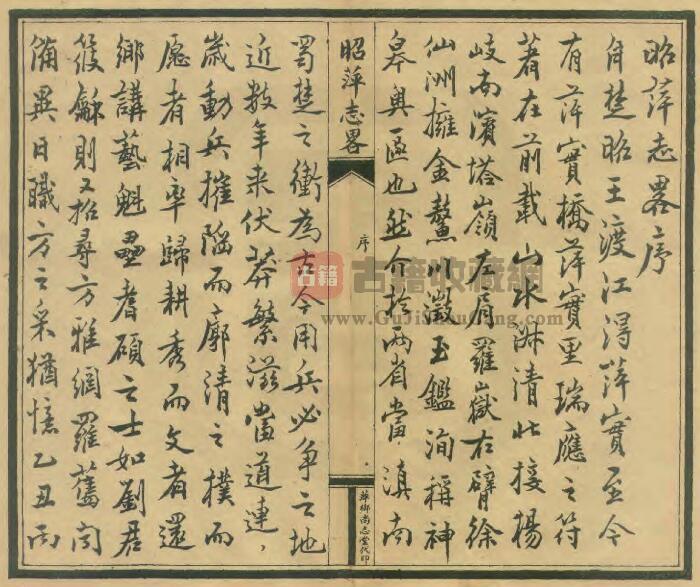 昭萍志畧序
自楚昭王渡江淂萍實至今
有萍實橋萍實里瑞應之符
著在前載山水清北接楊
岐南濱塔嶺左肩羅嶽右臂徐
仙洲擁金鰲川瀲玉鑑洵稱神
皋奧區也然介於兩省當滇南
昭萍志畧
序
萍鄉尚志堂代印
蜀楚之衝為古今用兵必爭之地
近数年来伏莽繁滋當道連、
歲動兵摧陷而廓清之樸而
愿者相率歸耕秀而文者還
鄉講藝魁壘耆碩之士如劉君
筱龢則又招尋方雅網羅舊聞
備異日職方之采猶憶乙丑丙
古籍
古籍收藏網
www.GuJiShouCang.com